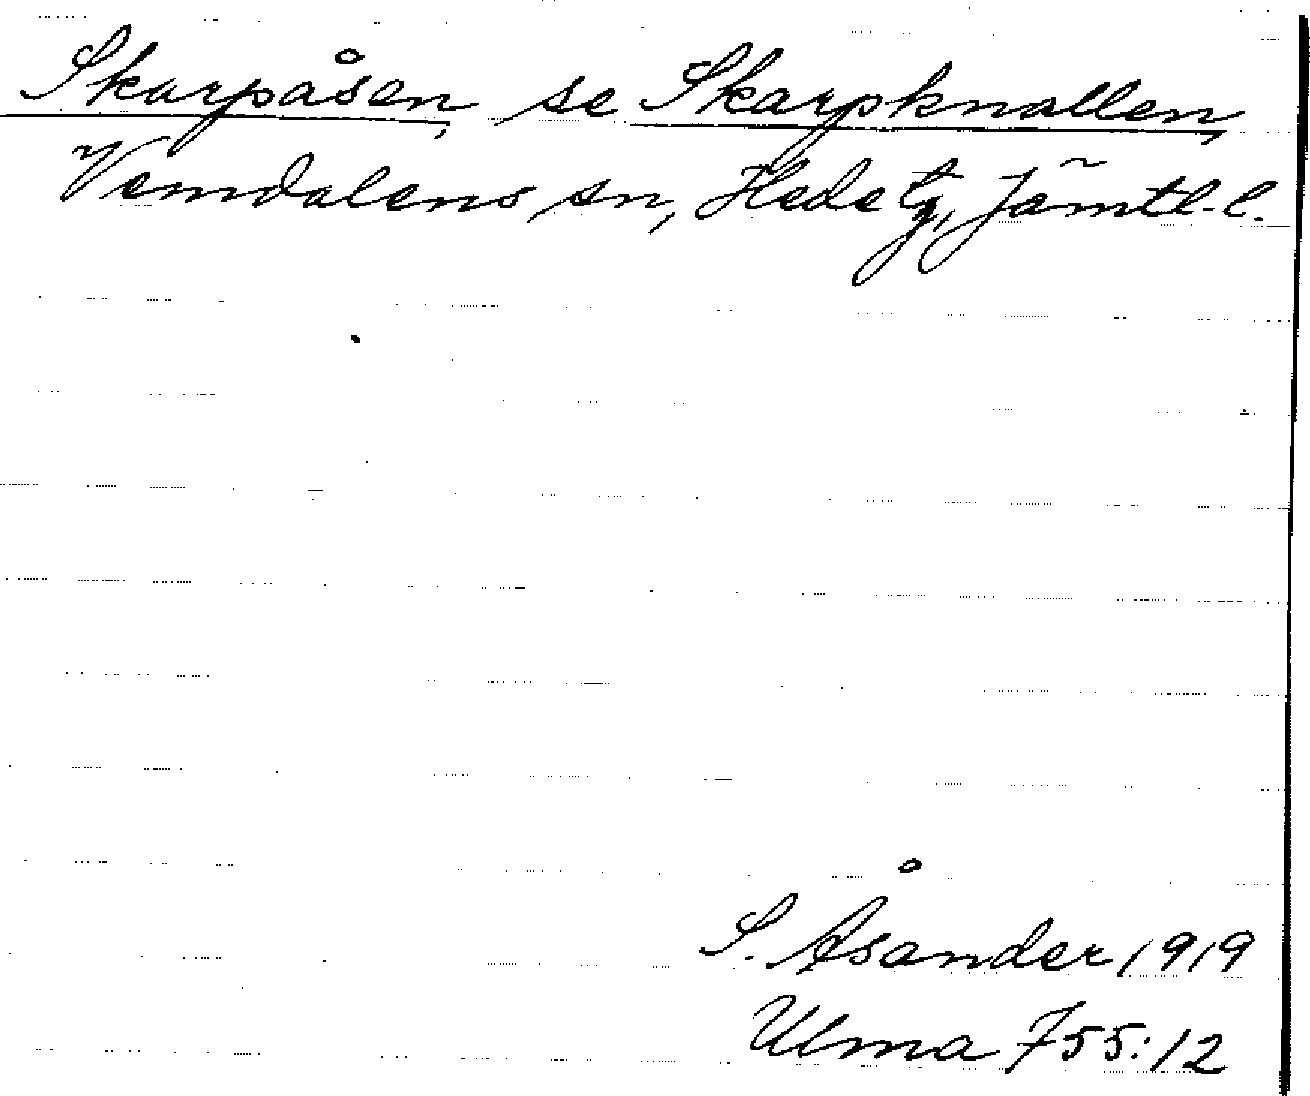 Skarpåsen, se Skarpknallen,
Vemdalens sn, Hede tg, Jämtl. l.
S. Åsander 1919
Ulma 755:12